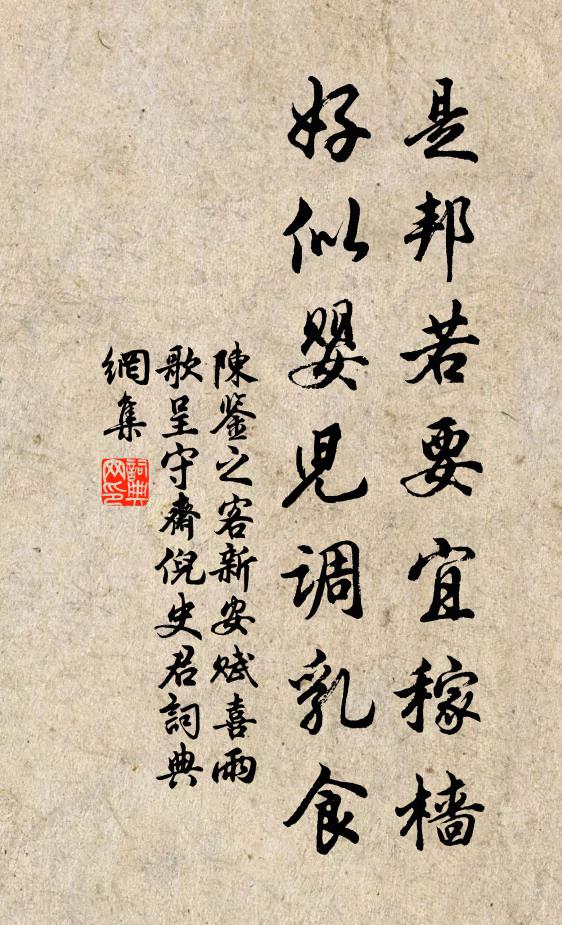 是邦若要宜稼檣
好似嬰兒調乳食
陳鉴之客新安賦喜雨
歌呈守齋倪史君詞典
網集
詞典
网印